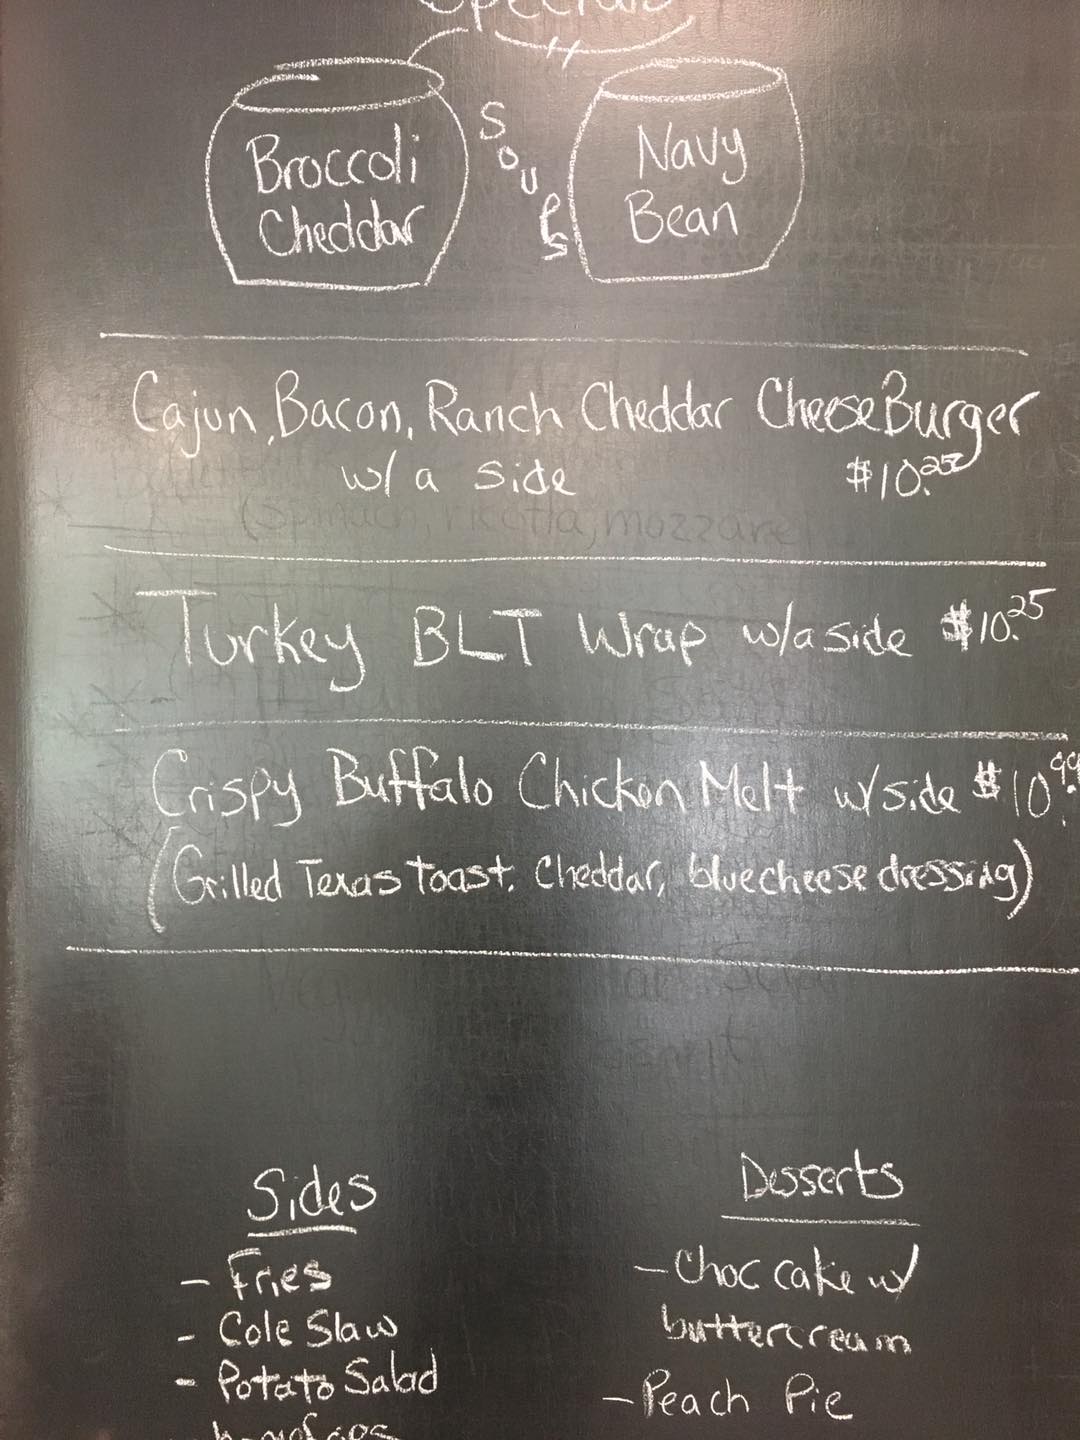 Specials
Broccoli
Cheddar
Soups
Navy
Bean
Cajun, Bacon, Ranch Cheddar CheeseBurger
w/ a side $10.25
Turkey BLT Wrap w/a side $10.25
Crispy Buffalo Chicken Melt w/side $10.99
(Grilled Texas toast, cheddar, bluecheese dressing)
Sides
- Fries
- Cole Slaw
- Potato Salad
Desserts
- Choc cake w/
buttercream
- Peach Pie